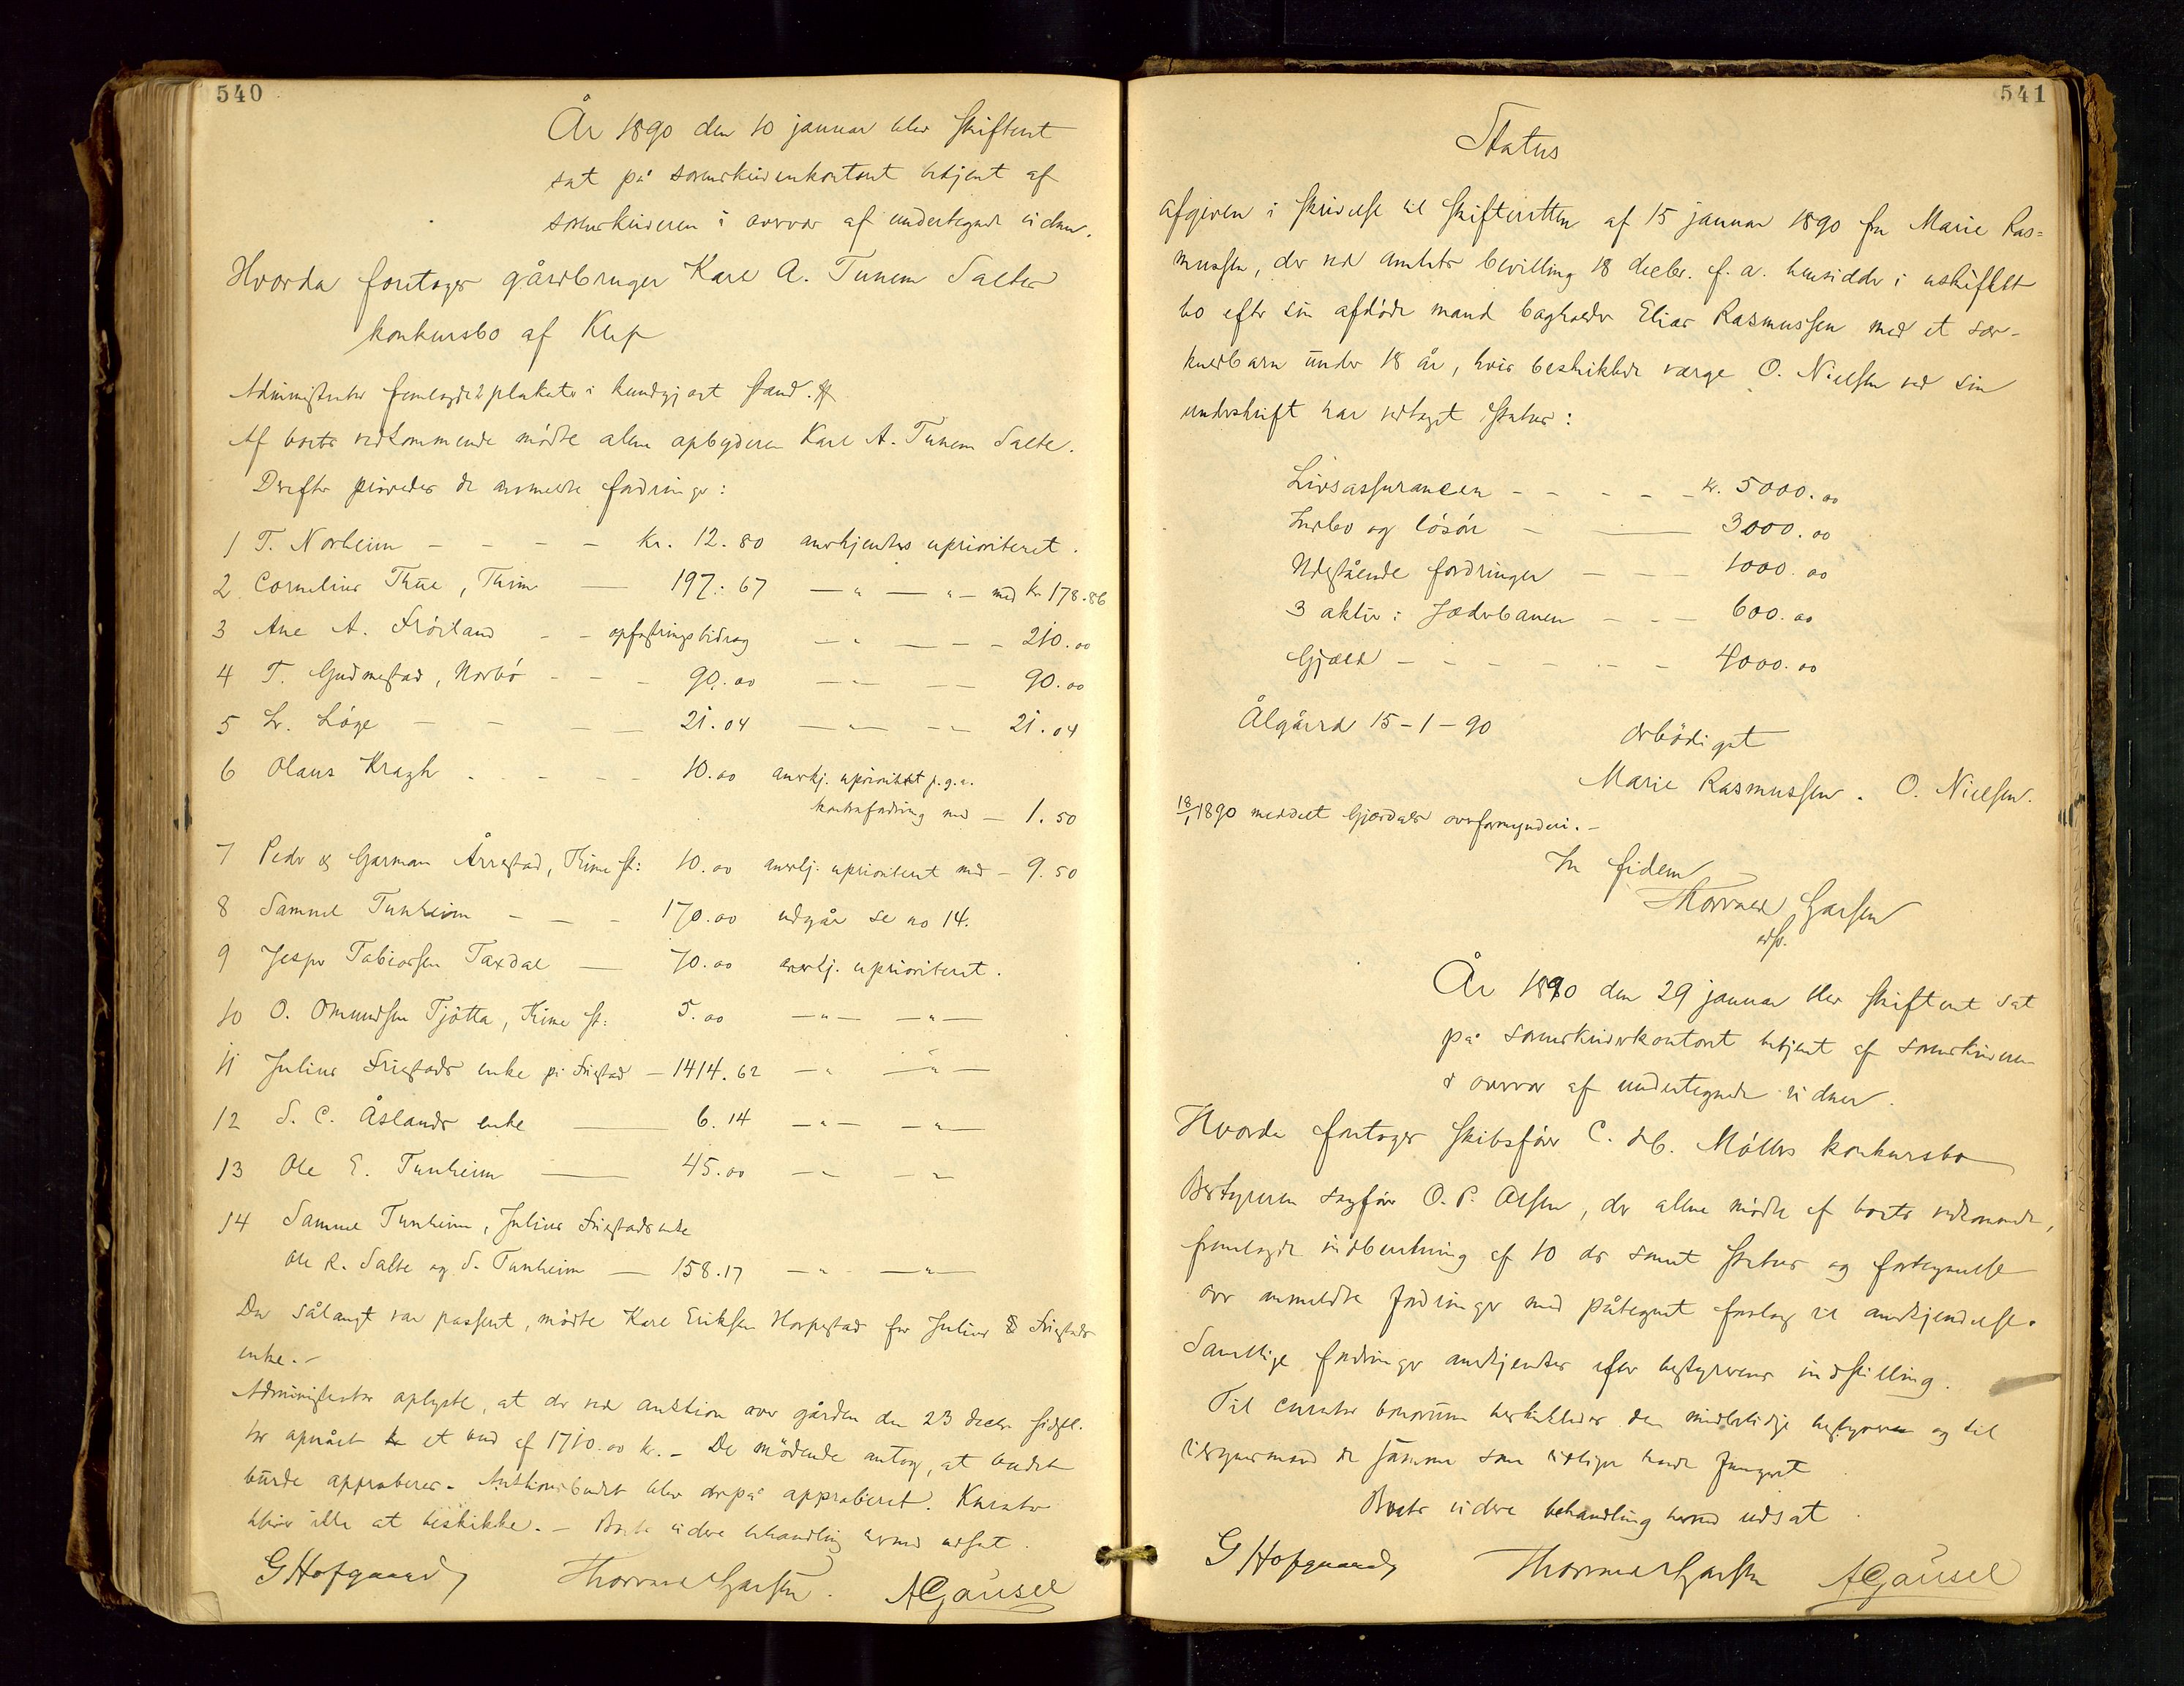 540
År 1890 den 10 januar blev skifteret
sat på sorenskriverkontoret betjent af
sorenskriveren i overvær af undertegnede vidner.
Hvorda foretoges gårdbruger Karl A. Tunem Saltes
konkursbo af Klep
Administrator fremlagde 2 plakater i kundgjort stand.
Af boets vedkommende mødte alene opbyderen Karl A. Tunem Salte.
Derefter prøvedes de anmeldte fordringer:
1 T. Norheim - - - - kr. 12.80 anerkjendtes uprioriteret.
2 Cornelius Thue, Thime — 197.67 — " — " — med kr. 178.86
3 Ane A. Frøiland - - opfostringsbidrag — " — - - 210.00
4 T. Gudmestad, Nærbø - - - 90.00 — " — — 90.00
5 Lr. Løge - - - - 21.04 — " — - - 21.04
6 Olaus Kragh - - - - 10.00 anerkj. uprioritet p.g.a.
kontrafordring med — 1.50
7 Peder & Garman Årrestad, Thime st: 10.00 anerkj. uprioriteret med - 9.50
8 Samuel Tunheim - - - 170.00 udgår se no 14.
9 Jesper Tobiassen Taxdal — 70.00 anerkj. uprioriteret.
10 O. Omundsen Tjøtta, Thime st: 5.00 — " — — " —
11 Julius Friestads enke på Friestad — 1414.62 — " — " —
12 S. C. Åslands enke — 6.14 — " — — " —
13 Ole E. Tunheim — 45.00 — " — — " —
14 Samuel Tunheim, Julius Friestads enke
Ole R. Salte og S. Tunheim — 158.17 — " — — " —
Da sålangt var passeret, mødte Karl Eriksen Horpestad for Julius Friestads
enke. -
Administrator oplyste, at der ved auktion over gården den 23 decbr. sidstl.
var opnået et bud af 1710.00 kr. - De mødende antog, at budet
burde approberes. - Auktionsbudet blev derpå approberet. Kurator
blev ikke at beskikke. - Boets videre behandling hermed udsat.
G Hofgaard Thorvald Garsen. A Gausel
541
Status
afgiven i skrivelse til skifteretten af 15 januar 1890 fra Marie Ras=
mussen, der ved amtets bevilling 18 decbr. f. a. hensidder i uskiftet
bo efter sin afdøde mand bogholder Elias Rasmussen med et sær-
kuldbarn under 18 år, hvis beskikkede værge O. Nielsen ved sin
underskrift har vedtaget status:
Livsassurancen - - - - - kr. 5000.00
Indbo og løsøre - — 3000.00
Udestående fordringer - - - 1000.00
3 aktier i Jæderbanen - - - 600.00
Gjæld - - - - - - - 4000.00
Ålgård 15-1-90
ærbødigst
Marie Rasmussen. O. Nielsen.
18/1 1890 meddelt Gjesdals overformynderi. -
In fidem
Thorvald Garsen
År 1890 den 29 januar blev skifteret sat
på sorenskriverkontoret betjent af sorenskriveren
i overvær af undertegnede vidner.
Hvorda foretoges skibsfører C. Møllers konkursbo
Bestyreren sagfører O. P. Olsen, der alene mødte af boets vedkommende,
fremlagde indberetning af 10 ds samt status og fortegnelse
over anmeldte fordringer med påtegnet forslag til anerkjendelse.
Samtlige fordringer anerkjendtes efter bestyrerens indstilling.
Til curator bonorum beskikkedes den midlertidige bestyrer og til
tilsynsmænd de samme som tidligere havde fungeret
Boets videre behandling hermed udsat.
G Hofgaard Thorvald Garsen A Gausel